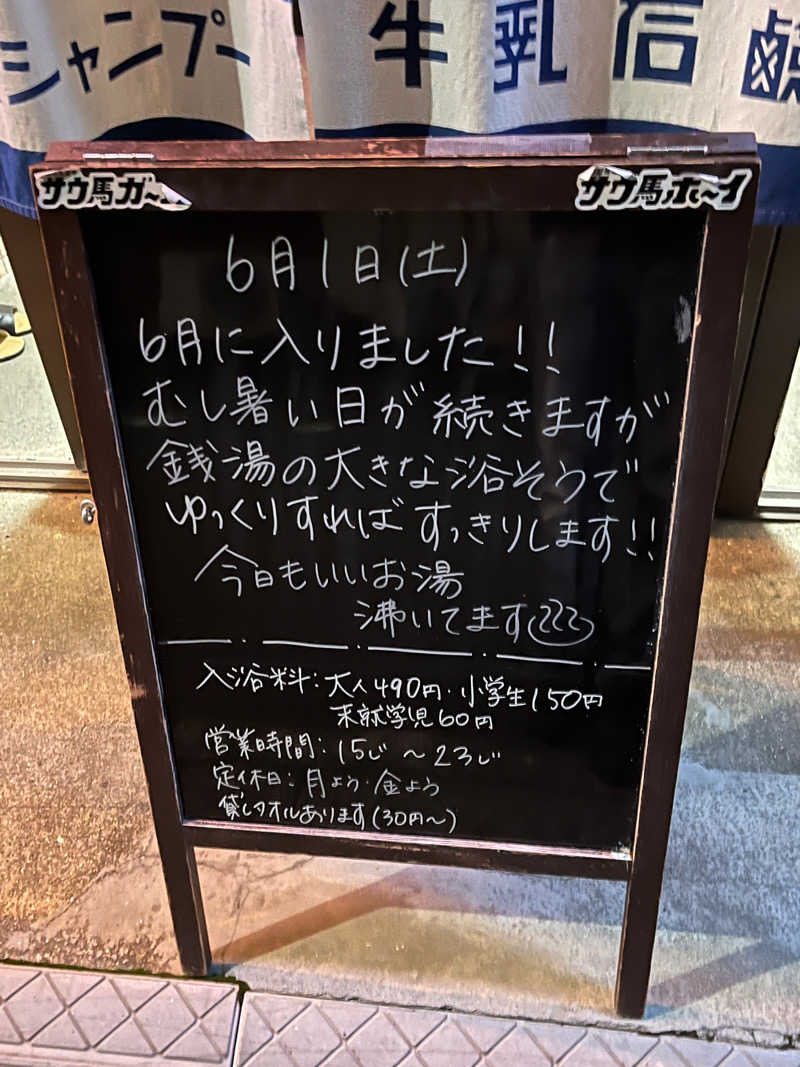 シャンプー 牛乳石鹸
ザウ馬ガ〜
ザウ馬ホ〜イ
6月1日(土)
6月に入りました!!
むし暑い日が続きますが
銭湯の大きな浴そうで
ゆっくりすればすっきりします!!
今日もいいお湯
沸いてます
入浴料:大人490円・小学生150円
未就学児60円
営業時間:15じ〜23じ
定休日:月よう・金よう
貸しタオルあります(30円〜)